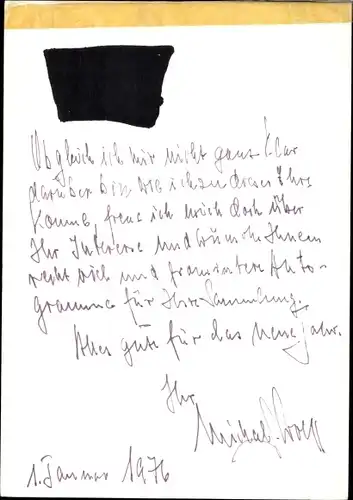 Obgleich ich mir nicht ganz klar
darüber bin wie ich zu dieser Ehre
komme, freue ich mich doch über
Ihr Interesse und wünsche Ihnen
recht viel und prominentere Auto-
gramme für Ihre Sammlung.
Alles gute für das neue Jahr.
Ihr
Michael
1. Januar 1976